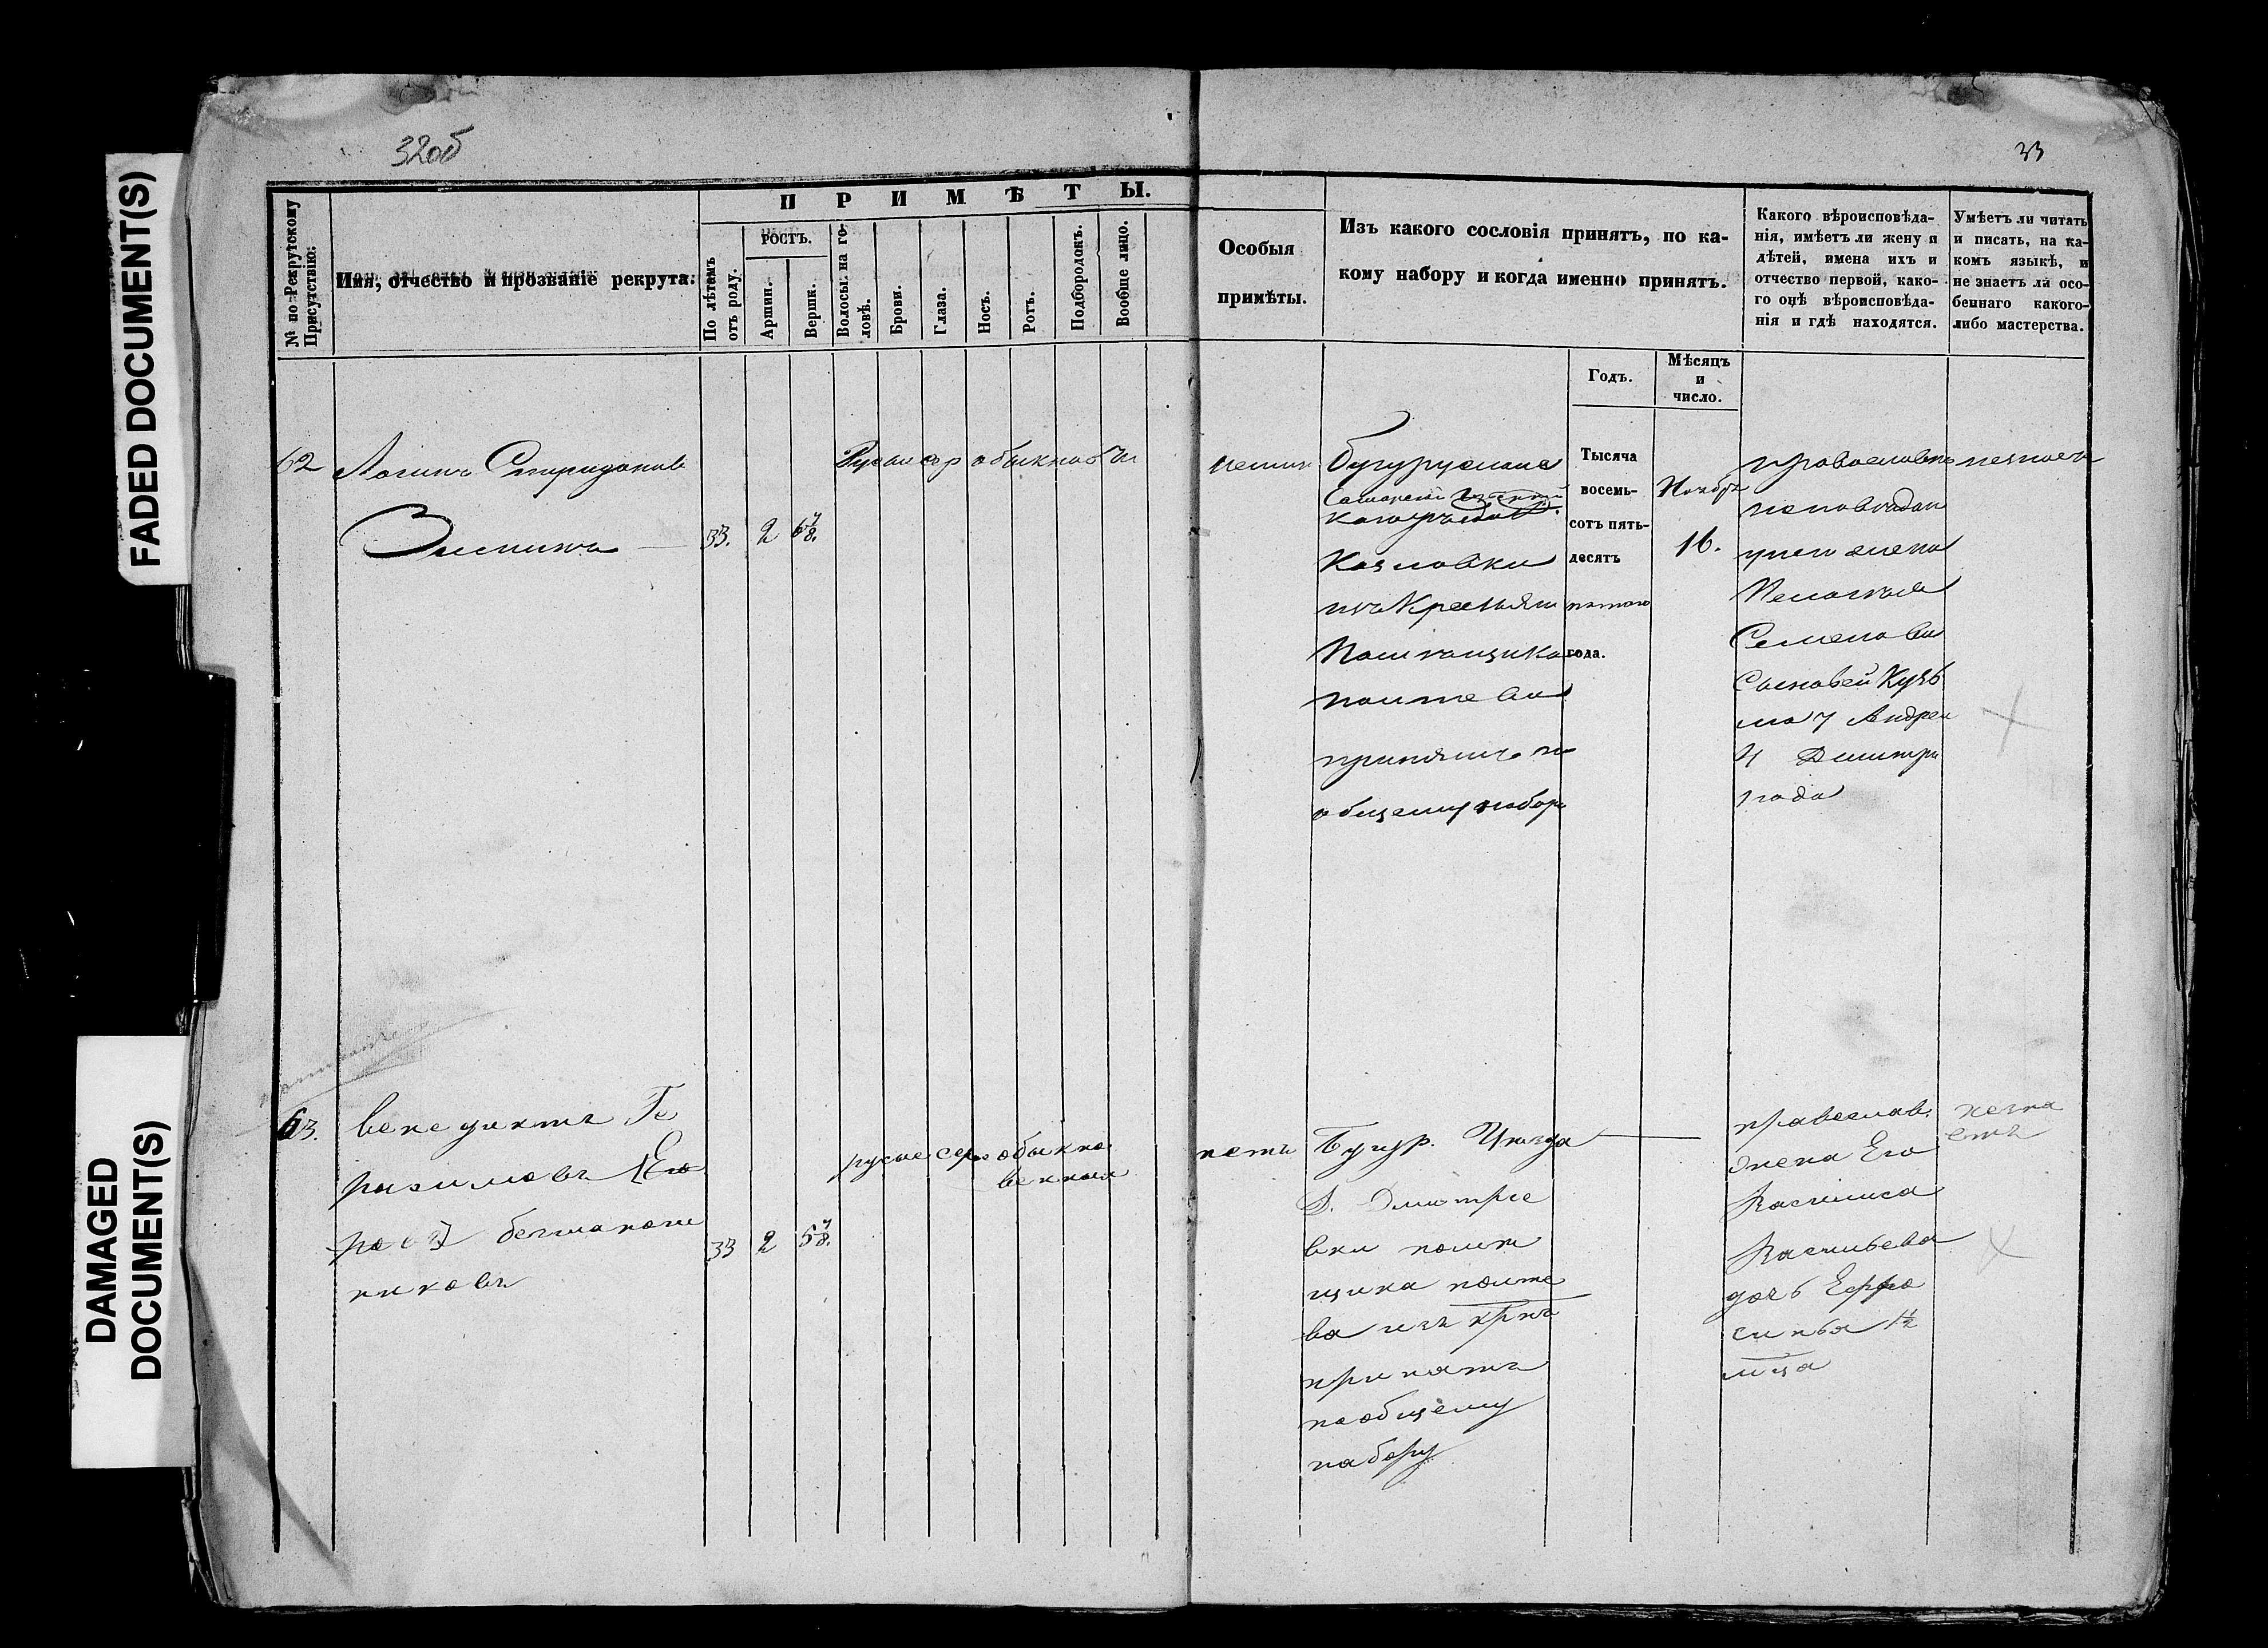 FADED DOCUMENT(S)
DAMAGED
DOCUMENT(S)
32об
33
№ по Рекрутскому
Присутствію.
Имя, отчество и прозваніе рекрута.
П Р И М Ѣ Т Ы.
По лѣтамъ
отъ роду.
РОСТЪ.
Аршин.
Вершк.
Волосы на го-
ловѣ.
Брови.
Глаза.
Носъ.
Ротъ.
Подбородокъ.
Вообще лицо.
Особыя
примѣты.
Изъ какого сословія принятъ, по ка-
кому набору и когда именно принятъ.
Какого вѣроисповѣда-
нія, имѣетъ ли жену и
дѣтей, имена ихъ и
отчество первой, како-
го онѣ вѣроисповѣда-
нія и гдѣ находятся.
Умѣетъ ли читать
и писать, на ка-
комъ языкѣ, и
не знаетъ ли осо-
беннаго какого-
либо мастерства.
Годъ.
Мѣсяцъ
и
число.
62
Логинъ Спиридонов
33. 2 6 7/8.
Русые сер обыкнов
Козловки
изъ Крестьян
Помѣщика
принятъ по
общему набору
Тысяча
восемь-
сотъ пять-
десятъ
пятаго
года.
Ноябр
16.
православн
исповѣдан
жена
Пелагѣя
Семенова
Сыновей Кузь
ма 7 Андрей
4 Дмитри
1 года
63.
Венедиктъ Ге
расимовъ
Башмаков
никовъ
33 2 5 7/8.
русые серо обыкно
венныя
нетъ
Бугур. Уѣзда
д. Дмитрие
вки помѣ
щика
ва изъ крнъ
принятъ
по общему
набору
православ.
жена Его
Василиса
Васильева
дочь Ефро
синья 1 1/2
мца
незна
етъ